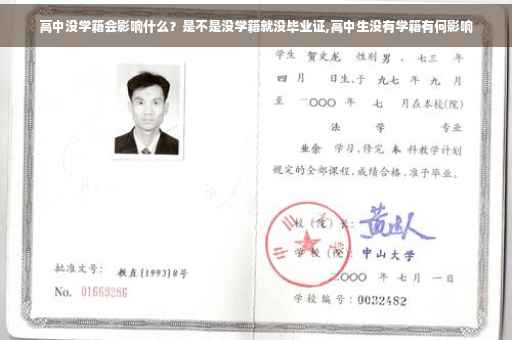 高中没学籍会影响什么？是不是没学籍就没毕业证,高中生没有学籍有何影响
学生 贺文龙 性别 男 、七三 年
四 月 日生,于 九七 年 九 月
至 二〇〇〇 年 七 月在本校(院)
法 学 专业
业余 学习,修完 本 科教学计划
规定的全部课程,成绩合格,准予毕业。
校（院）长：
学 校（院）： 中山大学
二〇〇〇 年 七 月 一日
学校编号：0032482
批准文号： 教直[1993]8号
No. 01669286